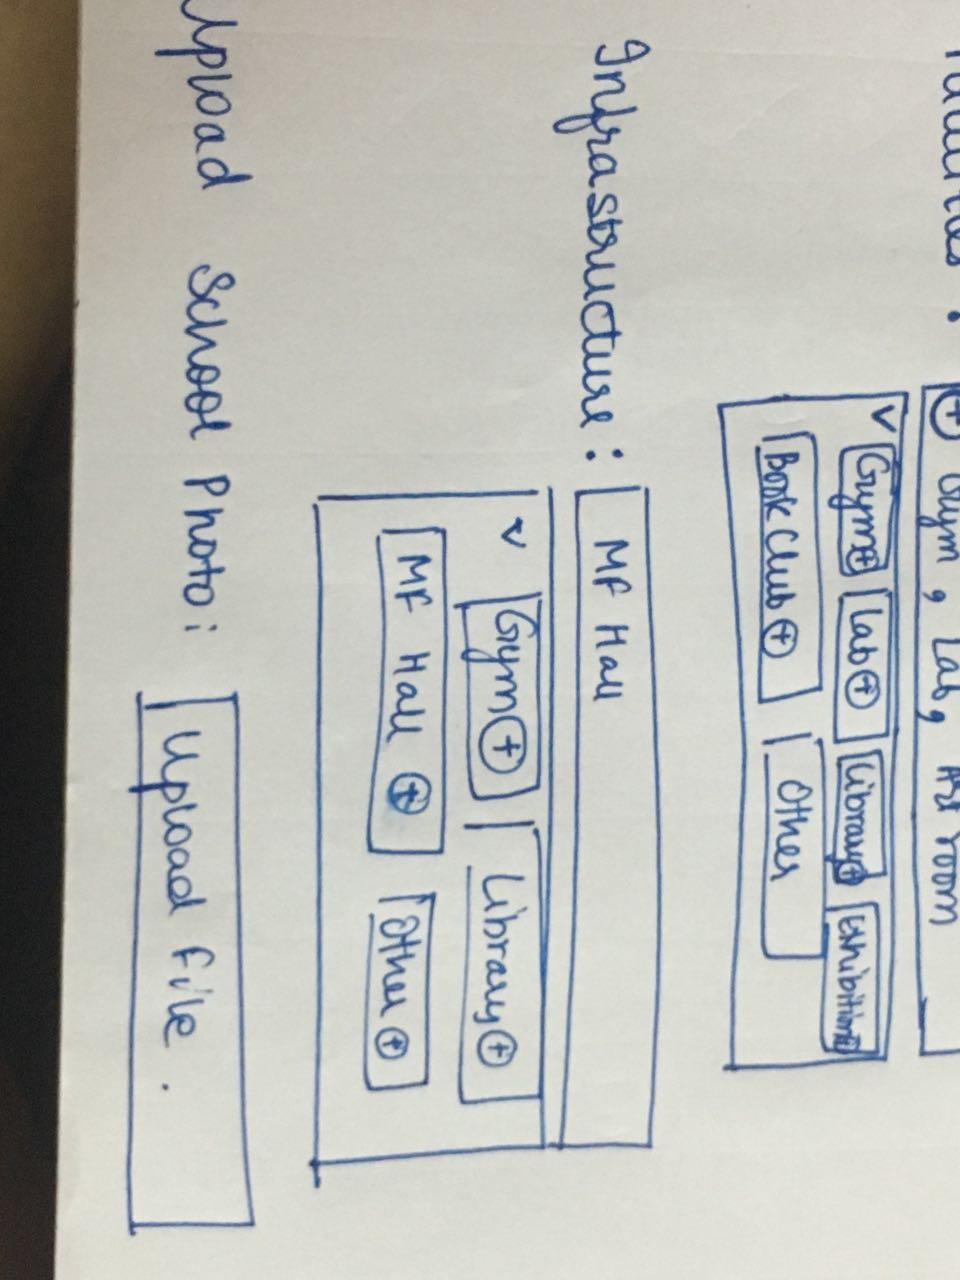 Facilities :
+ Gym, Lab, Art room
Gym + Lab + Library + Exhibition +
Book Club + Other
Infrastructure : MF Hall
Gym + Library +
MF Hall + Other +
Upload School Photo : Upload file .